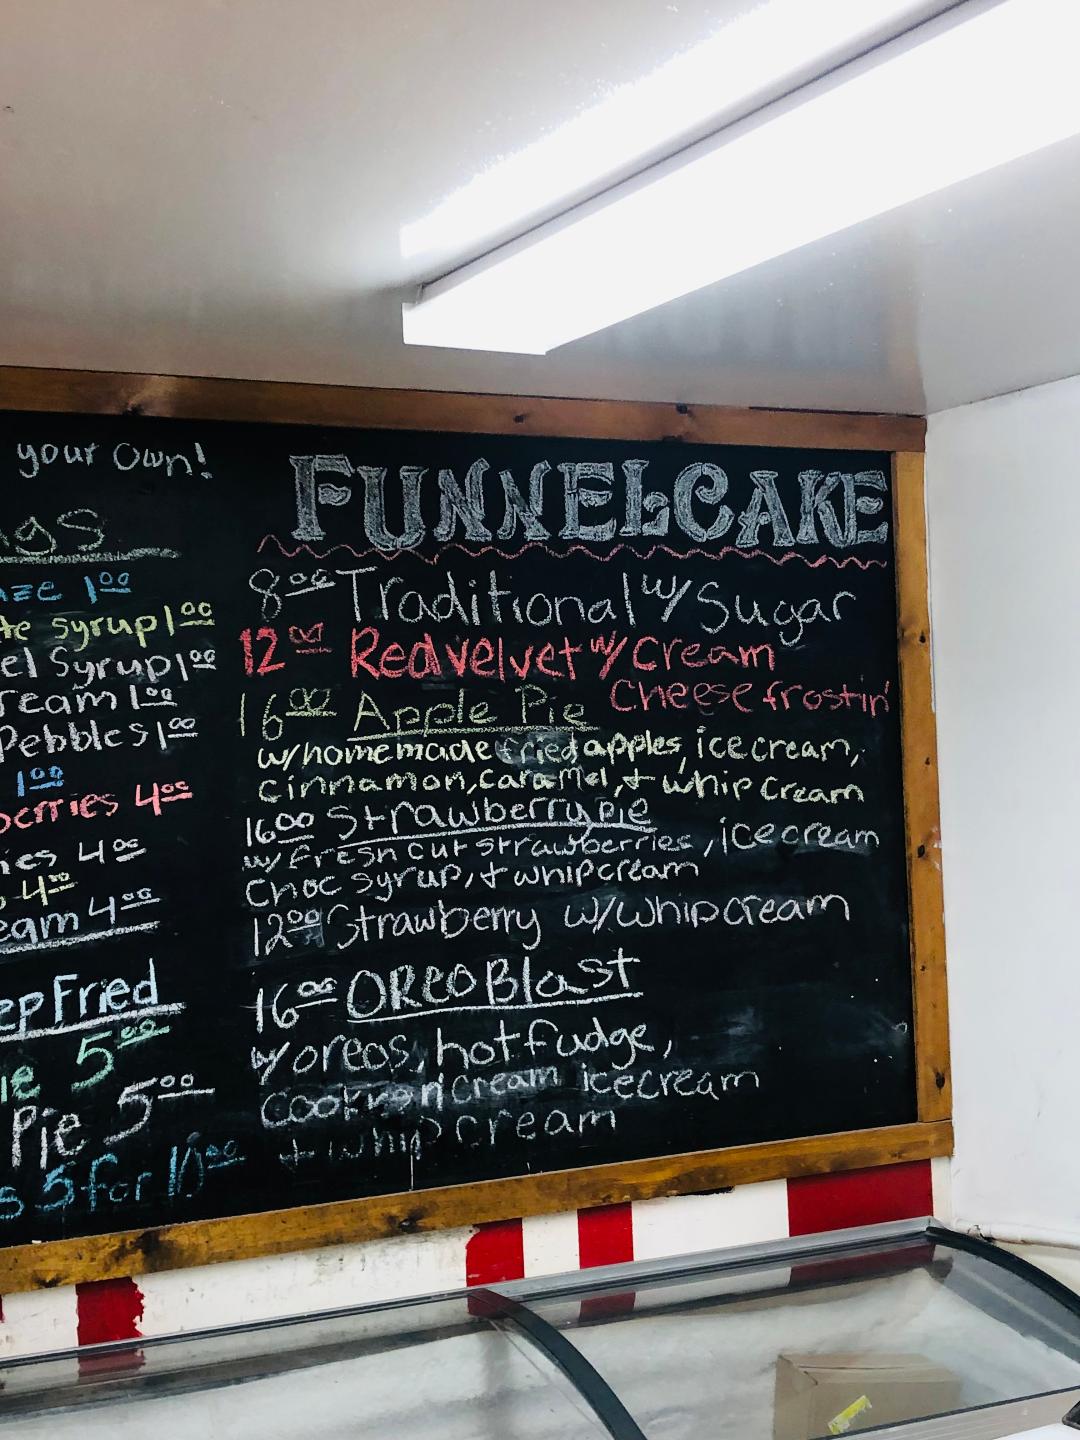 your Own!
8.00 Traditional w/ Sugar
syrup 1.00
Syrup 1.00
1.00
Pebbles 1.00
1.00
4.00
4.00
4.00
4.00
Fried
5.00
Pie 5.00
5 for 10.00
FUNNELCAKE
12.00 Red velvet w/ Cream
Cheese frostin'
16.00 Apple Pie
w/homemade fried apples, ice cream,
cinnamon, caramel, + whip cream
16.00 Strawberry pie
w/ fresh cut strawberries, icecream
Choc syrup, + whipcream
12.00 Strawberry w/ whipcream
16.00 OREO Blast
w/ oreos, hot fudge,
Cookies n cream icecream
+ whip cream